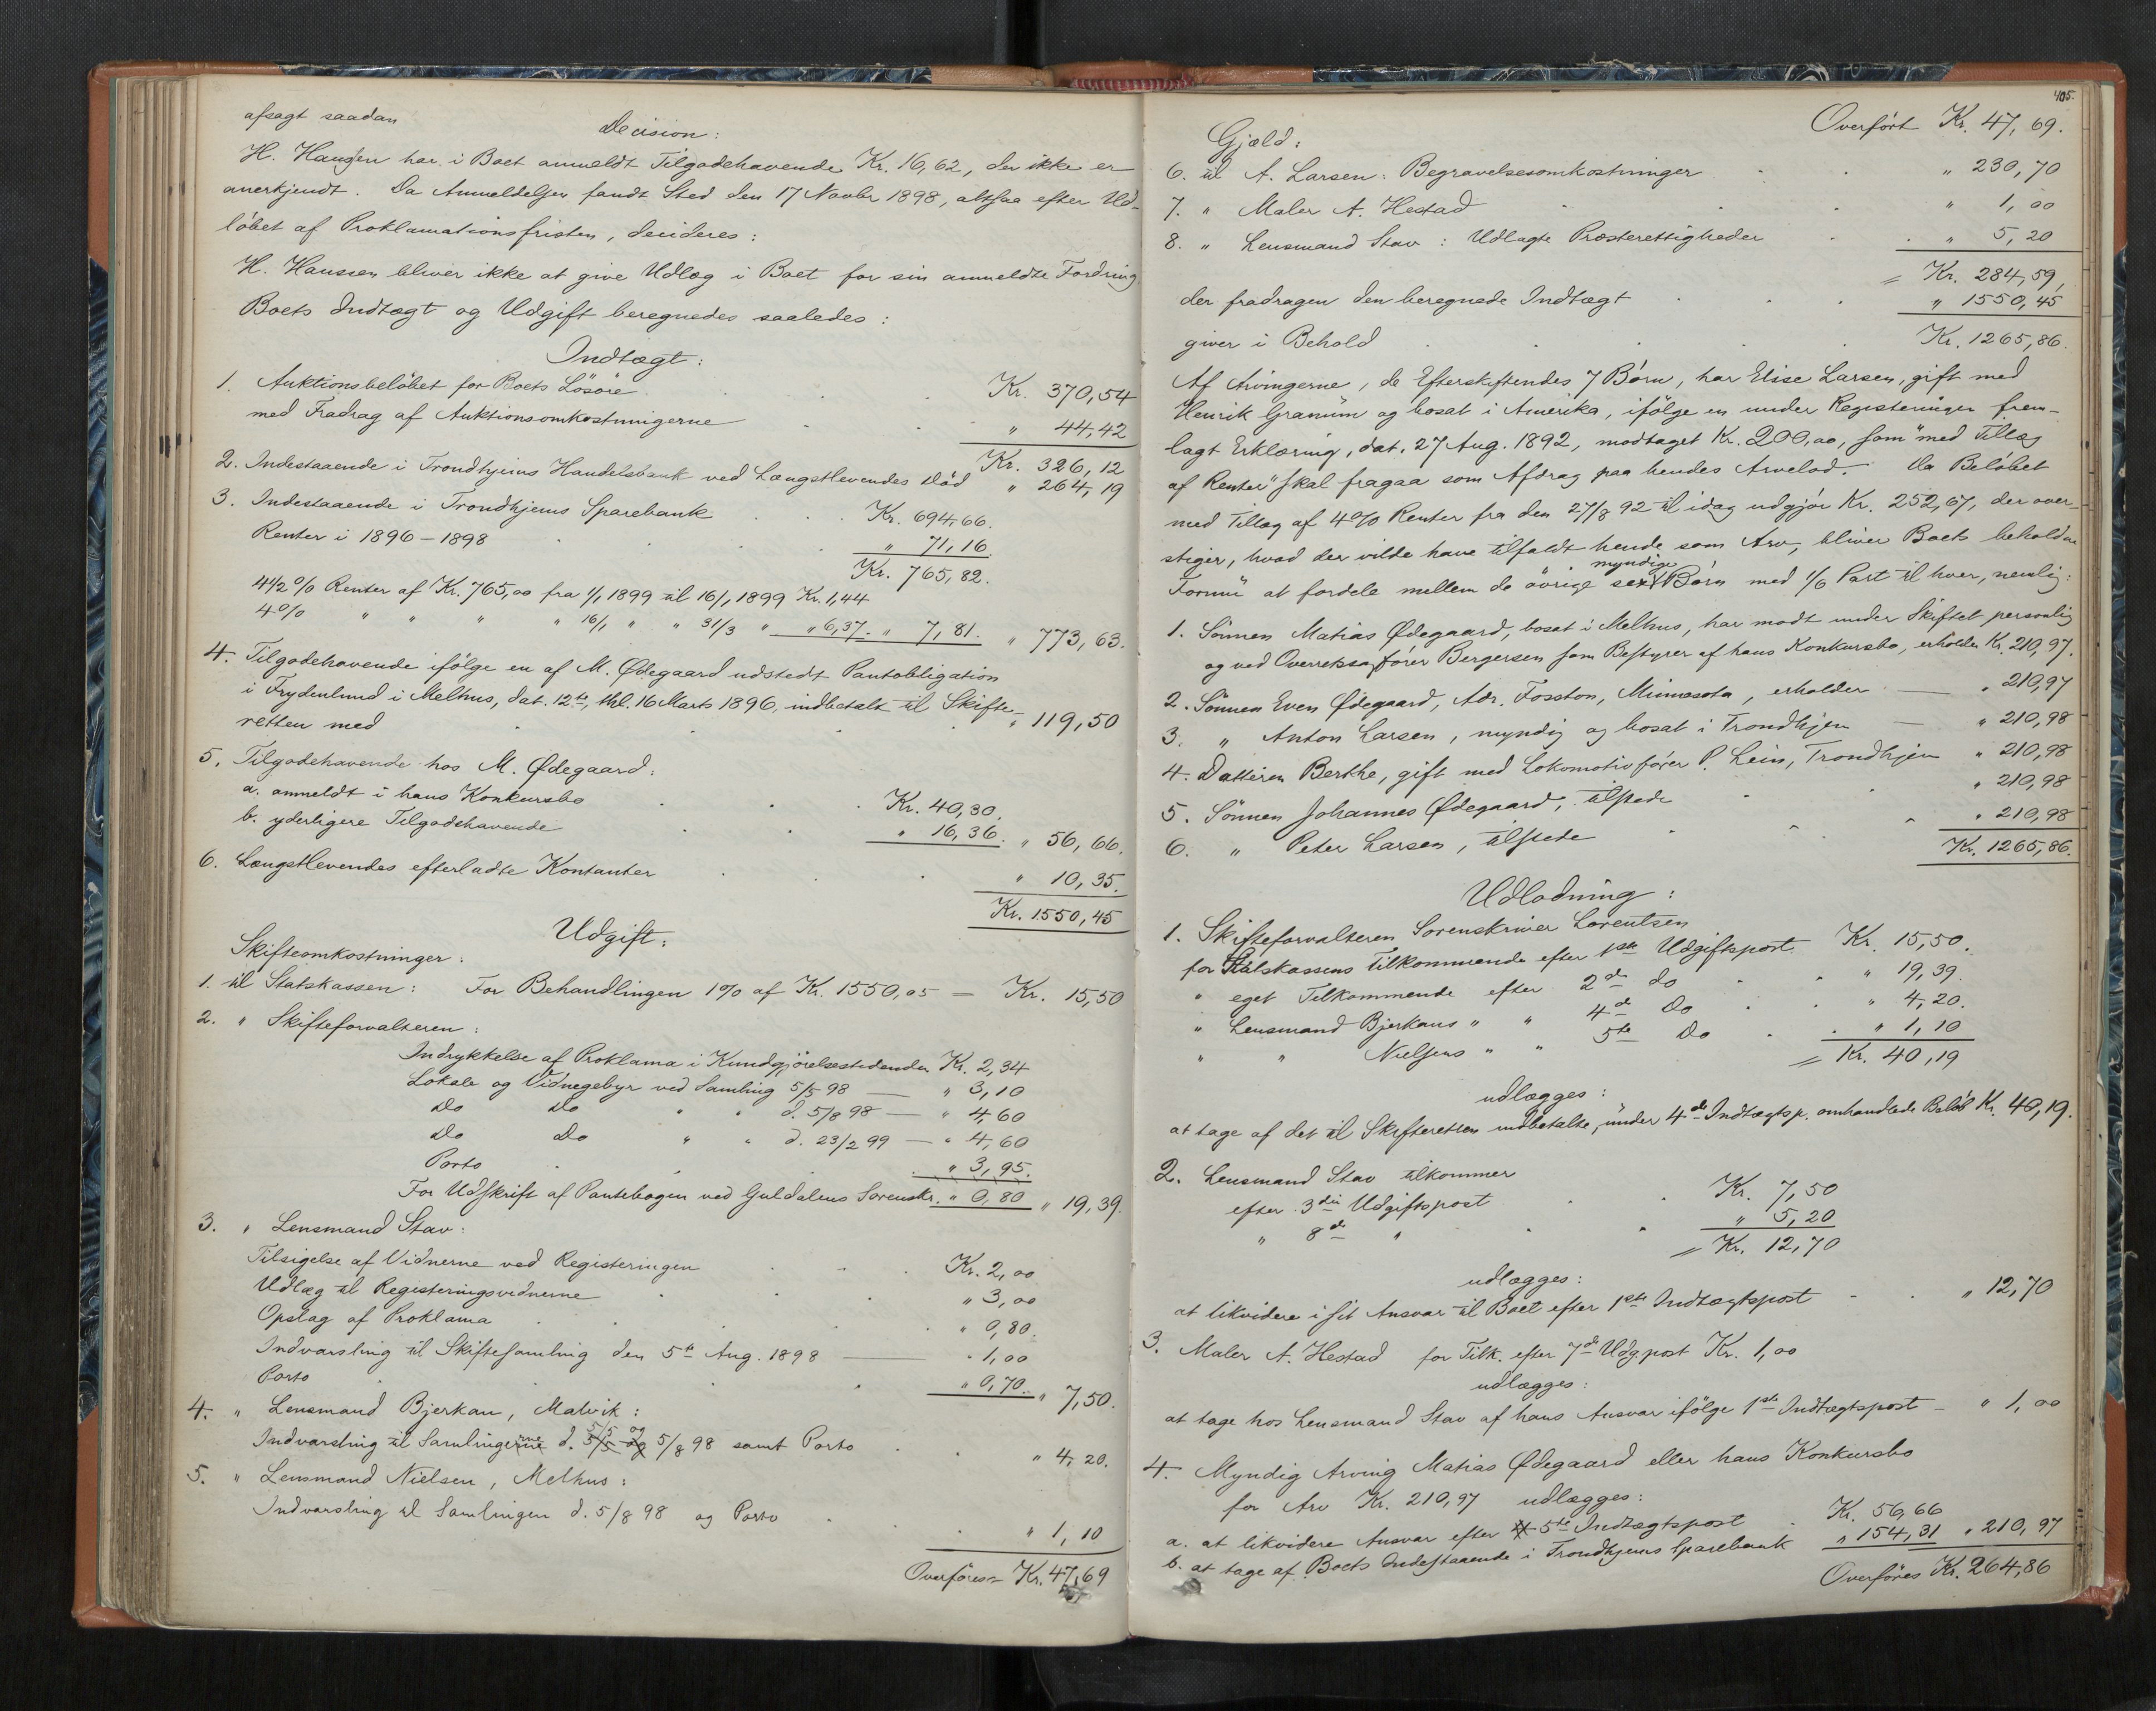 afsagt saadan
Decision:
H. Haugen har i Boet anmeldt Tilgodehavende Kr. 16,62, der ikke er
anerkjendt. Da Anmeldelsen fandt Sted den 17 Novbr 1898, altsaa efter Ud-
løbet af Proklamationsfristen, decideres:
H. Hanssen bliver ikke at give Udlæg i Boet for sin anmeldte Fordring.
Boets Indtægt og Udgift beregnedes saaledes:
Indtægt:
1. Auktionsbeløbet for Boets Løsøre Kr. 370,54
med Fradrag af Auktionsomkostningerne " 44,42
Kr. 326,12
2. Indestaaende i Trondhjems Handelsbank ved Længstlevendes Død " 264,19
3. Indestaaende i Trondhjems Sparebank Kr. 694,66.
Renter i 1896-1898 " 71,16.
Kr. 765,82.
4½ % Renter af Kr. 765,00 fra 1/1 1899 til 16/1 1899 Kr. 1,44
4 % " " " " 16/1 " " 31/3 " " 6,37. " 7,81. " 773,63.
4. Tilgodehavende ifølge en af M. Ødegaard udstedt Pantobligation
i Frydenlund i Melhus, dat. 12te, thl. 16 Marts 1896, indbetalt til Skifte-
retten med " 119,50
5. Tilgodehavende hos M. Ødegaard:
a. anmeldt i hans Konkursbo Kr. 40,30.
b. yderligere Tilgodehavende " 16,36. " 56,66.
6. Længstlevendes efterladte Kontanter " 10,35.
Kr. 1550,45
Udgift:
Skifteomkostninger:
1. til Statskassen: For Behandlingen 1% af Kr. 1550,05 — Kr. 15,50
2. " Skifteforvalteren:
Indrykkelse af Proklama i Kundgjørelsestidenden Kr. 2,34
Lokale og Vidnegebyr ved Samling 5/5 98 — " 3,10
Do Do " " d. 5/8 98 — " 4,60
Do Do " " d. 23/2 99 — " 4,60
Porto " 3,95.
For Udskrift af Pantebogen ved Guldalens Sorenskr. " 0,80 " 19,39.
3. " Lensmand Stav:
Tilsigelse af Vidnerne ved Registeringen Kr. 2,00
Udlæg til Registeringsvidnerne " 3,00
Opslag af Proklama " 0,80.
Indvarsling til Skiftesamling den 5te Aug. 1898 — " 1,00
Porto " 0,70. " 7,50.
4. " Lensmand Bjerkan, Malvik:
Indvarsling til Samlingerne d. 5/5 og 5/8 98 samt Porto " 4,20.
5. " Lensmand Nielsen, Melhus:
Indvarsling til Samlingen d. 5/8 98 og Porto " 1,10
Overføres Kr. 47,69
405.
Overført Kr. 47,69.
Gjæld:
6. til A. Larsen: Begravelsesomkostninger " 230,70
7. " Maler A. Hestad " 1,00
8. " Lensmand Stav: Udlagte Præsterettigheder " 5,20
= Kr. 284,59,
der fradragen den beregnede Indtægt " 1550,45
giver i Behold Kr. 1265,86.
Af Arvingerne, de Efterskiftendes 7 Børn, har Elise Larsen, gift med
Henrik Granum og bosat i Amerika, ifølge en under Registeringen frem-
lagt Erklæring, dat. 27 Aug. 1892, modtaget Kr. 200,00, som "med Tillæg
af Renter" skal fragaa som Afdrag paa hendes Arvelod. Da Beløbet
med Tillæg af 4% Renter fra den 27/8 92 til idag udgjør Kr. 252,67, der over-
stiger, hvad der vilde have tilfaldt hende som Arv, bliver Boets beholdne
Formue at fordele mellem de øvrige sex myndige Børn med 1/6 Part til hver, nemlig:
1. Sønnen Matias Ødegaard, bosat i Melhus, har mødt under Skiftet personlig
og ved Overretssagfører Bergersen som Bestyrer af hans Konkursbo, erholder Kr. 210,97.
2. Sønnen Even Ødegaard, Adr. Fosston, Minnesota, erholder — " 210,97
3. " Anton Larsen, myndig og bosat i Trondhjem — " 210,98
4. Datteren Berthe, gift med Lokomotivfører P. Lein, Trondhjem " 210,98
5. Sønnen Johannes Ødegaard, tilstede " 210,98
6. " Peter Larsen, tilstede " 210,98
Kr. 1265,86.
Udlodning:
1. Skifteforvalteren Sorenskriver Lorentsen
for Statskassens Tilkommende efter 1ste Udgiftspost Kr. 15,50.
" eget Tilkommende efter 2de do " 19,39.
" Lensmand Bjerkans " " 4de Do " 4,20.
" " Nielsens " " 5te Do " 1,10
= Kr. 40,19
udlægges:
at tage af det til Skifteretten indbetalte, under 4de Indtægtsp. omhandlede Beløb Kr. 40,19.
2. Lensmand Stav tilkommer
efter 3die Udgiftspost Kr. 7,50
" 8de " " 5,20
= Kr. 12,70
udlægges:
at likvidere i sit Ansvar til Boet efter 1ste Indtægtspost " 12,70
3. Maler A. Hestad for Tilk. efter 7de Udg.post Kr. 1,00
udlægges:
at tage hos Lensmand Stav af hans Ansvar ifølge 1ste Indtægtspost — " 1,00
4. Myndig Arving Matias Ødegaard eller hans Konkursbo
for Arv Kr. 210,97 udlægges:
a. at likvidere Ansvar efter 5te Indtægtspost Kr. 56,66
b. at tage af Boets Indestaaende i Trondhjems Sparebank " 154,31 " 210,97
Overføres Kr. 264,86